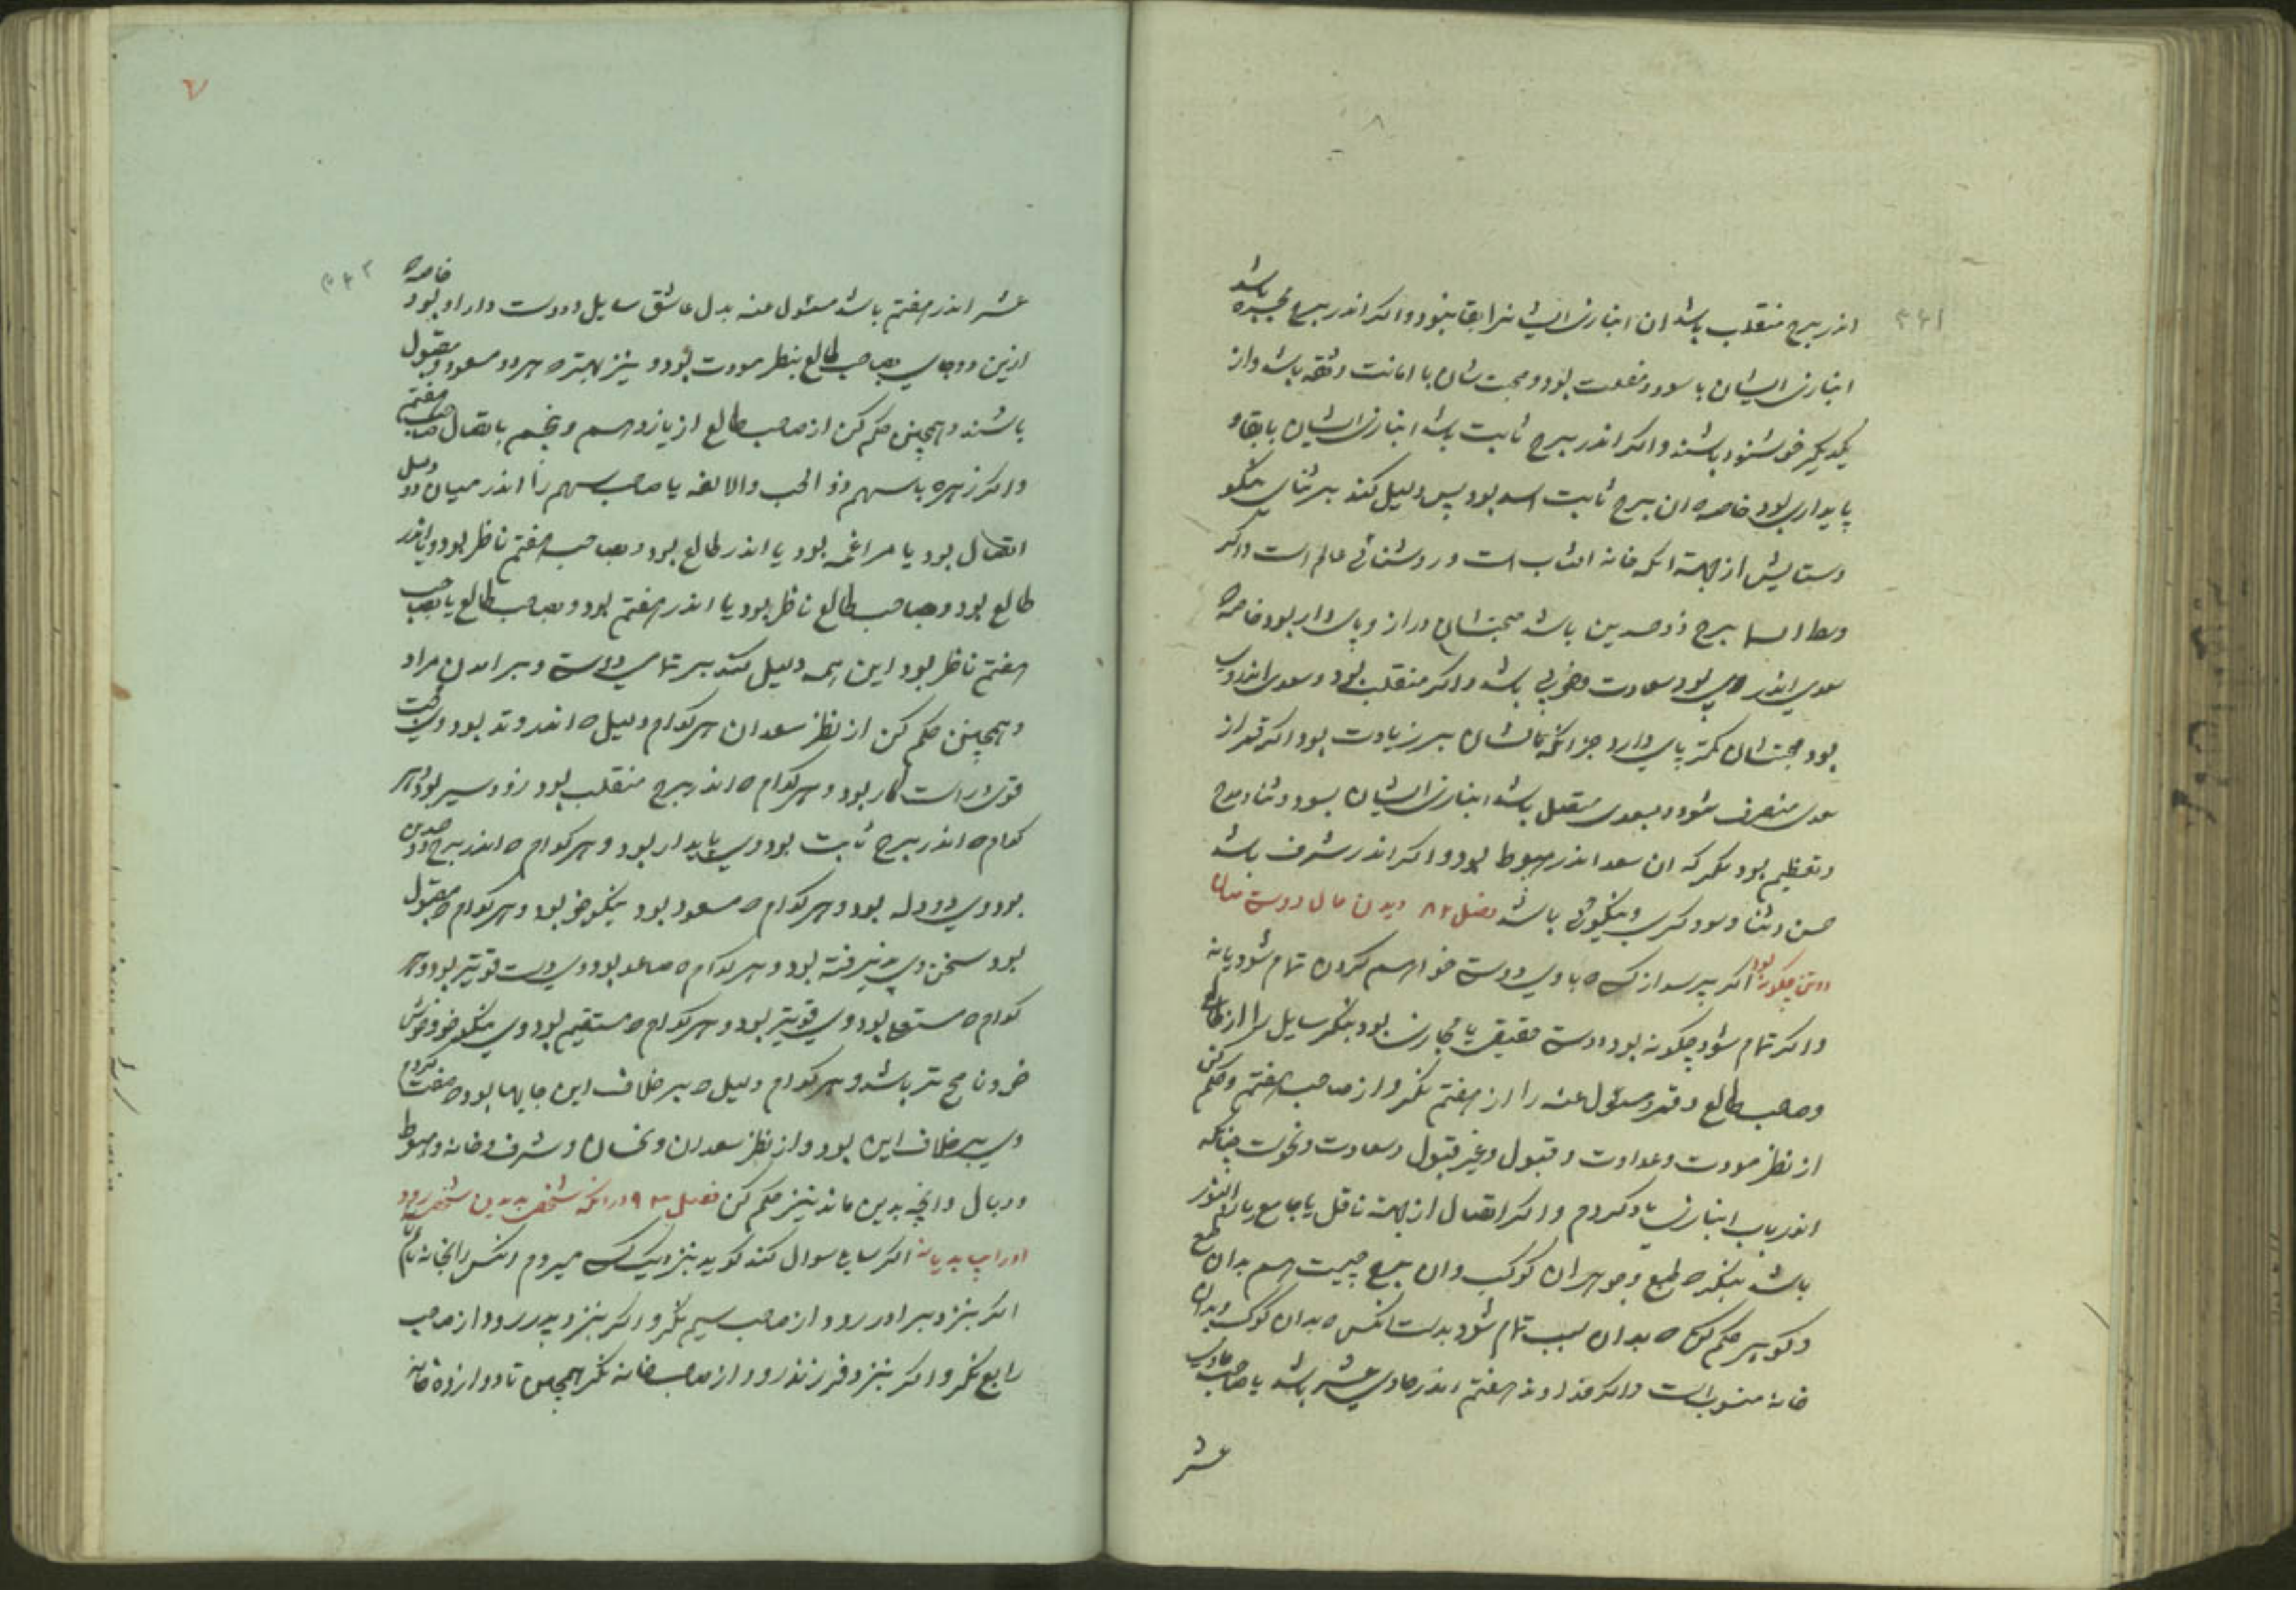 اندر برج منقلب باشد ان انبازی ایشان را بقا نبود و اگر اندر برج مجسده باشد
انبازی ایشان با سود و منفعت بود و محبت شان با امانت و ثقه باشد و از
یکدیگر خوشنود باشند و اکر اندر برج ثابت باشد انبازی ایشان با بقا و
پایداری بود خاصه ان برج ثابت اسد بود پس دلیل کند بر ثنای نیکو
وستایش از جهت انکه خانه افتاب است و روشنائی عالم است و اکر
وسط السما برج ذو جسدین باشد صحبتشان دراز و پای دار بود خاصه
سعدی اندر وی بود سعادت و خوبی باشد و اکر منقلب بود و سعدی اندر وی
بود صحبتشان کمتر پای دارد جز انکه مالشان بر زیادت بود اکر قمر از
سعدی منصرف شود و بسعدی متصل باشد انبازی ایشان بسود و ثنا و مدح
وتعظیم بود مگر که ان سعد اندر هبوط بود و اکر اندر شرف باشد
حسن و ثنا و سود و نیکوئی باشد فصل ۸۲ دیدن حال دوست
دوستی چکونه بود اکر پرسد از کسی که با وی دوستی خواهم کردن تمام شود یا نه
واکر تمام شود چکونه بود دوستی حقیقی یا مجازی بود بنکر سایل را از طالع
وصاحب طالع و قمر و مسئول عنه را از هفتم نکر و از صاحب هفتم و حکم کن
از نظر مودت و عداوت و قبول و غیر قبول و سعادت و نحوست چنانکه
اندر باب انبازی یاد کردم و اکر اتصال از جهت ناقل یا جامع یا النور
باشد بنکر که طبع و جوهر ان کوکب و ان برج چیست هم بدان طبع
و کوهر حکم کن که بدان سبب تمام شود بدست انکس که بدان کوکب و بدان
خانه منسوب است و اکر خداوند هفتم اندر حادی عشر باشد یا صاحب حادی
عشر
عشر اندر هفتم باشد مسئول عنه بدل عاشق سایل و دوست دار او بود خاصه
ازین دو جای بصاحب طالع بنظر مودت بود و نیز بهتر که هر دو مسعود و مقبول
باشند و همچنین حکم کن از صاحب طالع از یازدهم و پنجم باتصال صاحب هفتم
واکر زهره با سهم ذو الحب والالفه یا صاحب سهم را اندر میان دو دلیل
اتصال بود یا مراغمه بود یا اندر طالع بود و بصاحب هفتم ناظر بود و یا اندر
طالع بود و بصاحب طالع ناظر بود یا اندر هفتم بود و بصاحب طالع یا بصاحب
هفتم ناظر بود این همه دلیل کند بر تمامی دوستی و بر امدن مراد
و همچنین حکم کن از نظر سعدان هر کدام دلیل که اندر وتد بود وی
قوی و راست کار بود و هر کدام که اندر برج منقلب بود زود سیر بود و هر
کدام که اندر برج ثابت بود وی پایدار بود و هر کدام که اندر برج ذو جسدین
بود وی دودله بود و هر کدام که مسعود بود نیکوخو بود و هر کدام که مقبول
بود سخن وی پذیرفته بود و هر کدام که صاعد بود دوستی قویتر بود و هر
کدام که مستعلی بود وی قویتر بود و هر کدام که مستقیم بود وی نیکو خو و خوش
باشد و هر کدام دلیل که بر خلاف این جایها بود که صفت کردم
وی بر خلاف این بود و از نظر سعدان و نحسان و شرف و خانه و هبوط
و وبال و انچه بدین ماند نیز حکم کن فصل ۹۳ در انکه شخصی بدیدن شخصی رود
او را یابد یا نه اکر سایلی سوال کند کوید بنزدیک کسی میروم انکس را بخانه یابم
اکر بنزد برادر رود از صاحب سیم نکر و اکر بنزد پدر رود از صاحب
رابع نکر و اکر بنزد فرزند رود از صاحب خانه نکر همچنین تا دوازده خانه